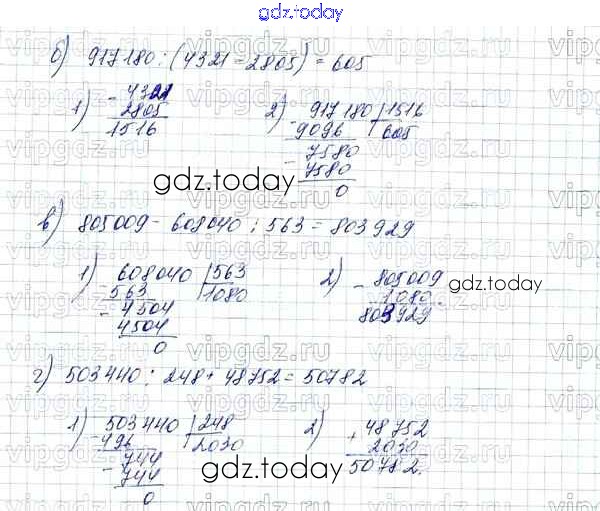 gdz.today
б) 917180 : (4321 - 2805) = 605
1) - 4321
2805
1516
2) - 917180 | 1516
9096 | 605
- 7580
7580
0
gdz.today
в) 805009 - 608040 : 563 = 803929
1) - 608040 | 563
563 | 1080
- 4504
4504
0
2) - 805009
1080
803929
gdz.today
г) 503440 : 248 + 48752 = 50782
1) - 503440 | 248
496 | 2030
- 744
744
0
2) + 48752
2030
50782.
gdz.today
vipgdz.ru